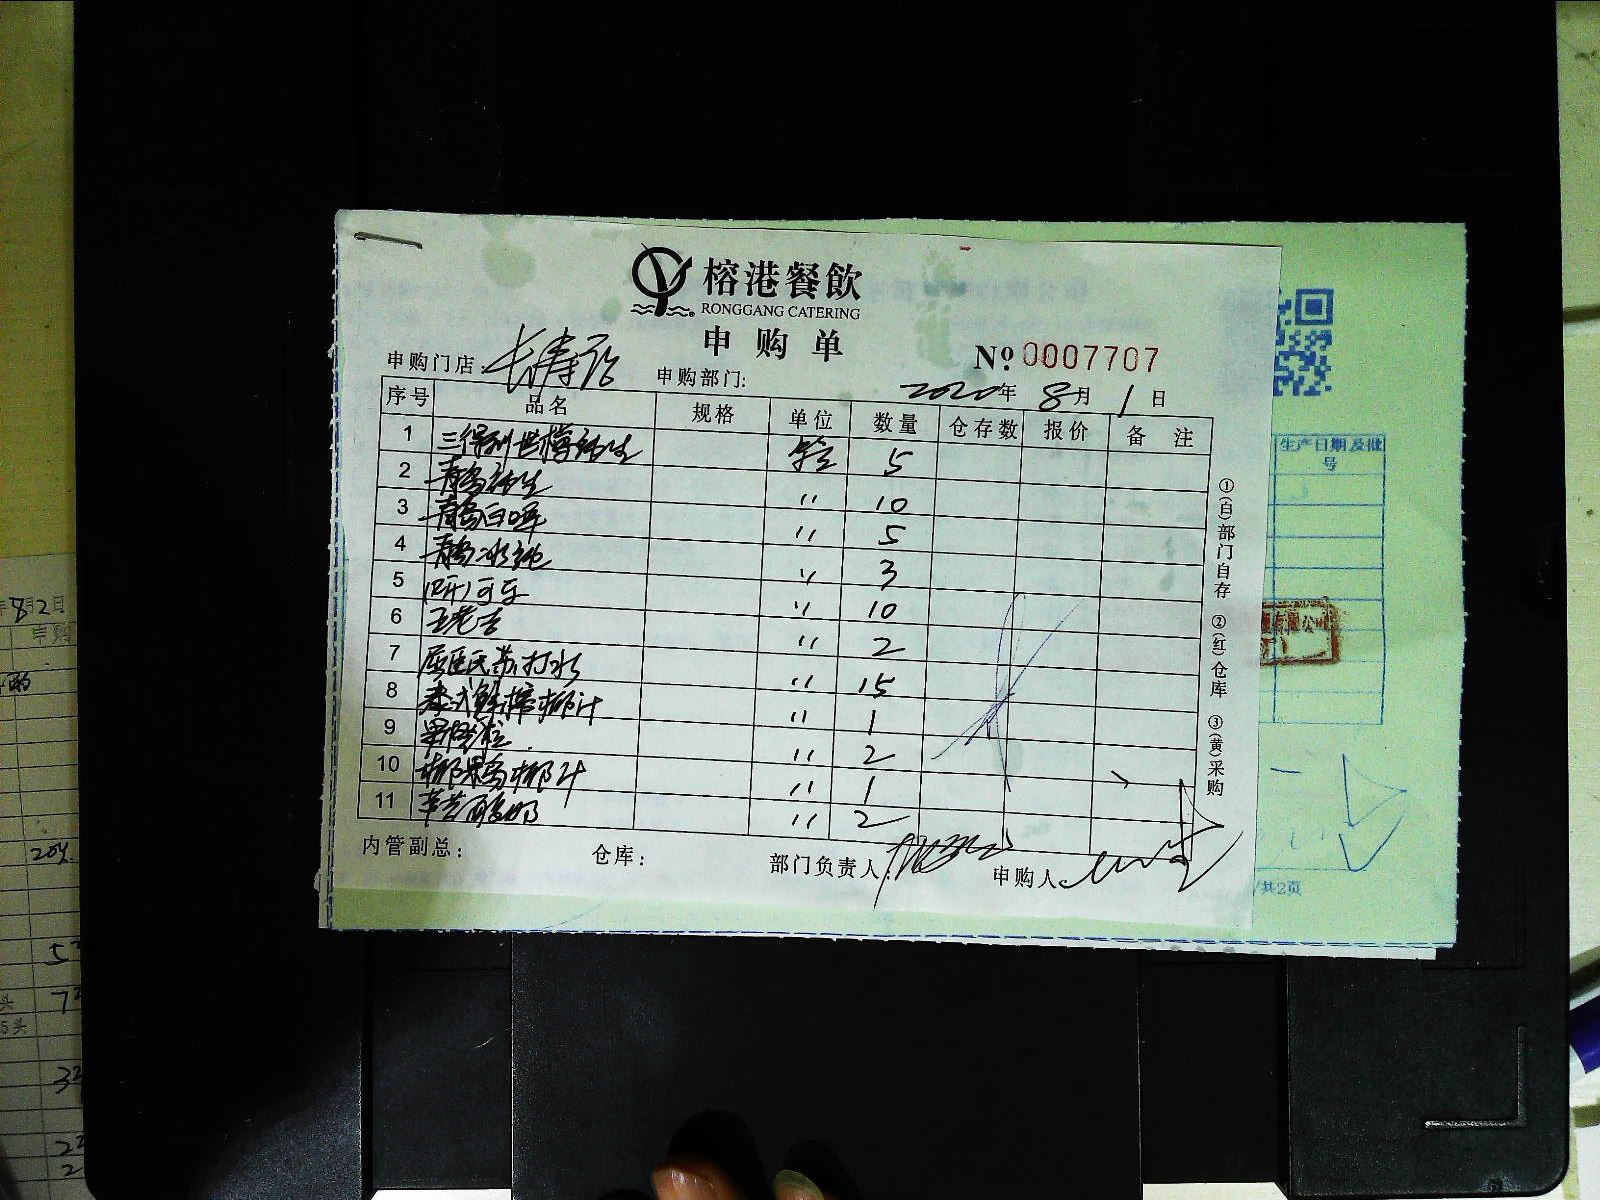 榕港餐飲
RONGGANG CATERING
申购单
№ 0007707
申购门店: 长寿路 申购部门: 2020年8月1日
序号 品名 规格 单位 数量 仓存数 报价 备注
1 三得利世博 5
2 青岛 〃 10
3 青岛白啤 〃 5
4 青岛冰纯 〃 3
5 (听)可乐 〃 10
6 王老吉 〃 2
7 屈臣氏苏打水 〃 15
8 泰式鲜榨椰汁 〃 1
9 果缤纷 〃 2
10 椰果岛椰汁 〃 1
11 酸奶 〃 2
内管副总: 仓库: 部门负责人: 申购人:
①(白)部门自存 ②(红)仓库 ③(黄)采购
生产日期及批
号
有限公司
/共2页
8月2日
申购